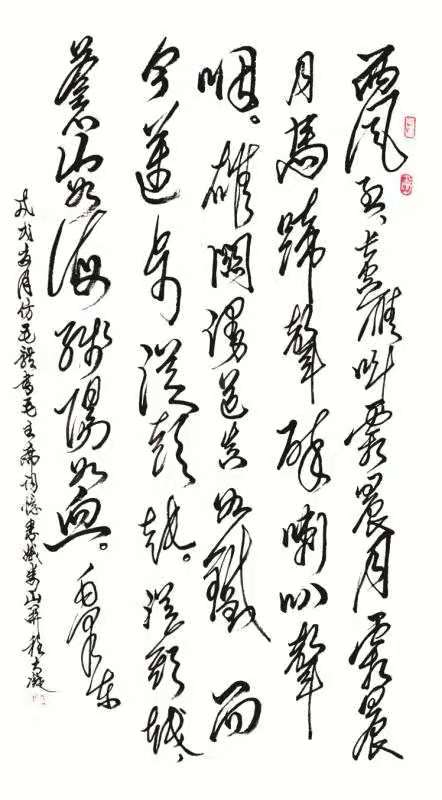 西风烈、长空雁叫霜晨月霜晨
月馬蹄聲碎喇叭聲
咽。雄關漫道真如鐵 而
今邁步從頭越。從頭越、
蒼山如海殘陽如血。毛澤東
戊戌岁月仿毛體書毛主席词憶秦娥娄山关程大